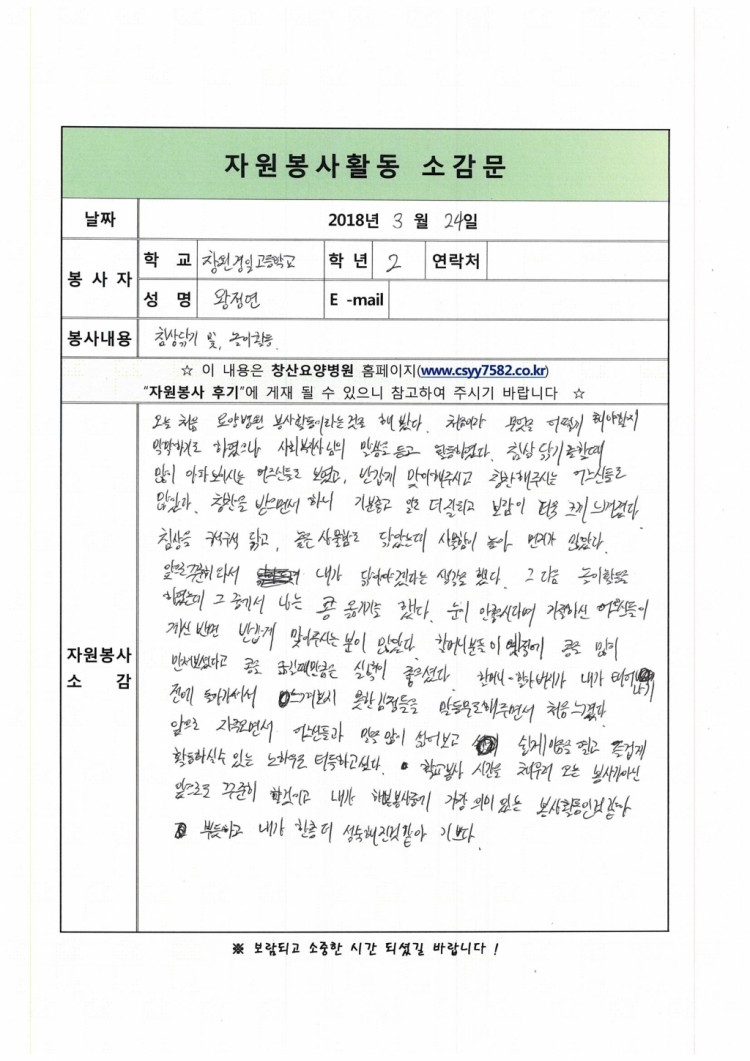 자원봉사활동 소감문
날짜 2018년 3 월 24일
봉 사 자 학 교 창원경일고등학교 학 년 2 연락처
성 명 왕정연 E -mail
봉사내용 침상닦기 및, 놀이활동.
☆ 이 내용은 창산요양병원 홈페이지(www.csyy7582.co.kr)
"자원봉사 후기"에 게재 될 수 있으니 참고하여 주시기 바랍니다 ☆
자원봉사
소 감
오늘 처음 요양병원 봉사활동이라는것을 해 봤다. 처음에는 무엇을 어떻게 해야할지
막막하기도 하였으나 사회복사님의 말씀을 듣고 활동하였다. 침상 닦기를할때
많이 아파보이시는 어르신들도 보였고, 반갑게 맞이해주시고 칭찬해주시는 어르신들도
많았다. 칭찬을 받으면서 하니 기분좋고 일도 더 잘되고 보람이 더욱 크게 느껴졌다.
침상을 구석구석 닦고, 높은 사물함도 닦았는데 사물함이 높아 먼지가 많았다.
앞으로꾸준히와서 내가 닦아야겠다는 생각을 했다. 그 다음 놀이활동을
하였는데 그 중에서 나는 콩 옮기기를 했다. 눈이 안좋시라며 거절하신 어르신들이
계신 반면 반갑게 맞아주시는 분이 많았다. 할머니분들이 옛적에 콩을 많이
만져보셨다고 콩을 옮길때만큼은 실력이 좋으셨다. 할머니-할아버지가 내가 태어나기
전에 돌아가셔서 느껴보지 못한감정들을 말동무를해주면서 처음 느꼈다.
앞으로 자주오면서 어르신들과 말을 많이 섞어보고 쉽게 마음을 열고 즐겁게
활동하실수 있는 노하우를 터득하고싶다. 학교봉사 시간을 채우러 오는 봉사가아닌
앞으로도 꾸준히 할것이고 내가 해본봉사중에 가장 의미 있는 봉사활동인것같아
뿌듯하고 내가 한층 더 성숙해진것같아 기쁘다.
※ 보람되고 소중한 시간 되셨길 바랍니다 !